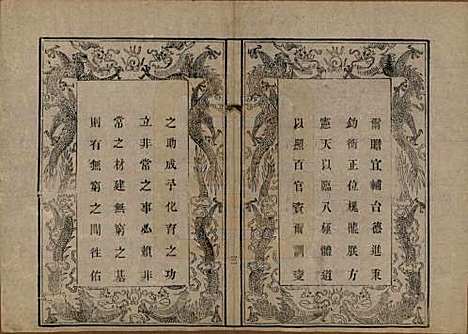 爾贈宜輔台德進秉
鈞衡正位槐龍朕方
憲天以臨八極體道
以熙百官賓爾調燮
之助成予化育之功
立非常之事必賴非
常之材建無窮之基
則有無窮之聞往佑